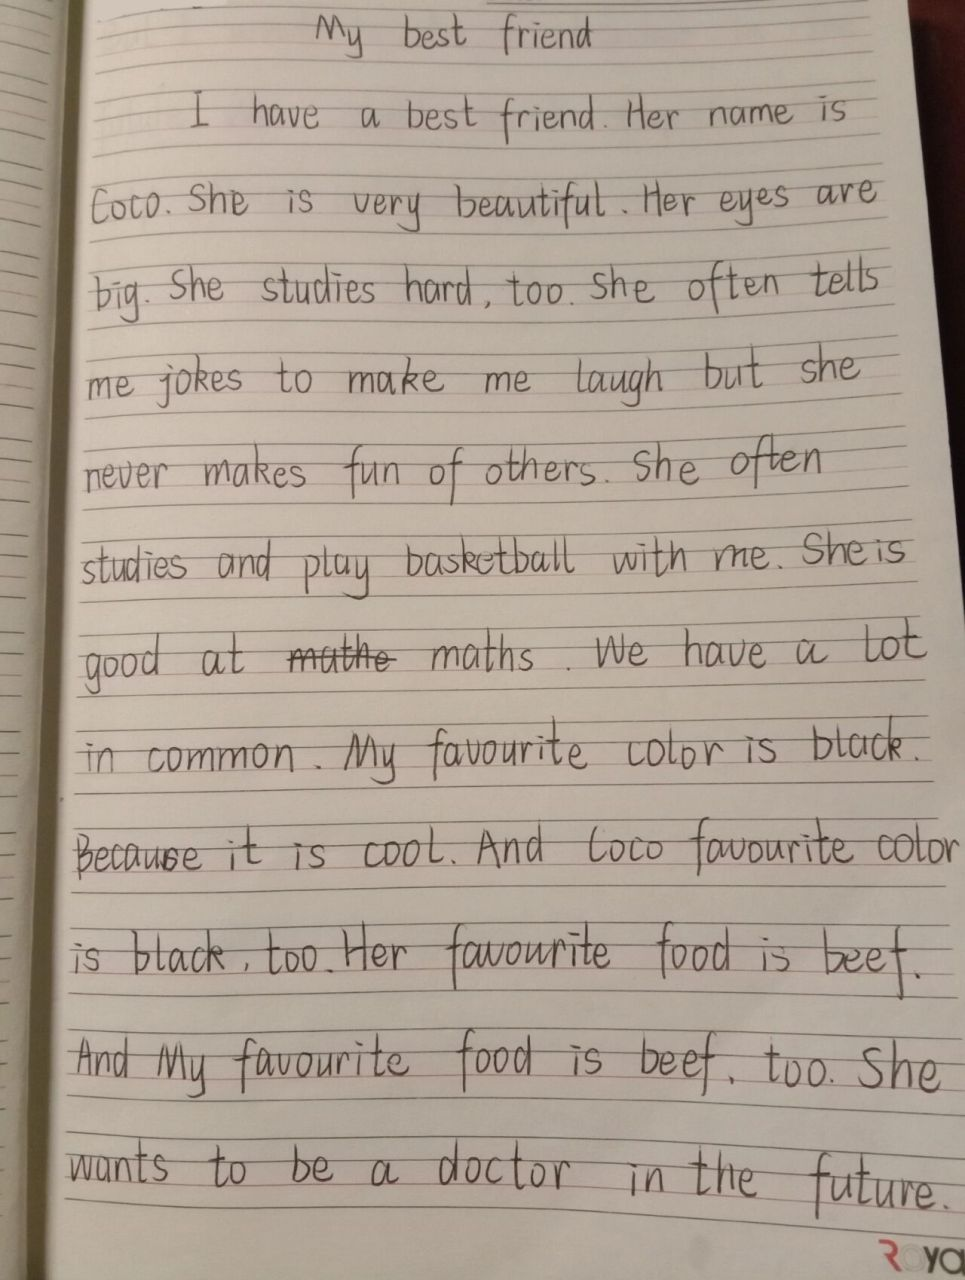 My best friend
I have a best friend. Her name is
Coco. She is very beautiful. Her eyes are
big. She studies hard, too. She often tells
me jokes to make me laugh but she
never makes fun of others. She often
studies and play basketball with me. She is
good at mathe maths. We have a lot
in common. My favourite color is black.
Because it is cool. And Coco favourite color
is black, too. Her favourite food is beef.
And My favourite food is beef, too. She
wants to be a doctor in the future.